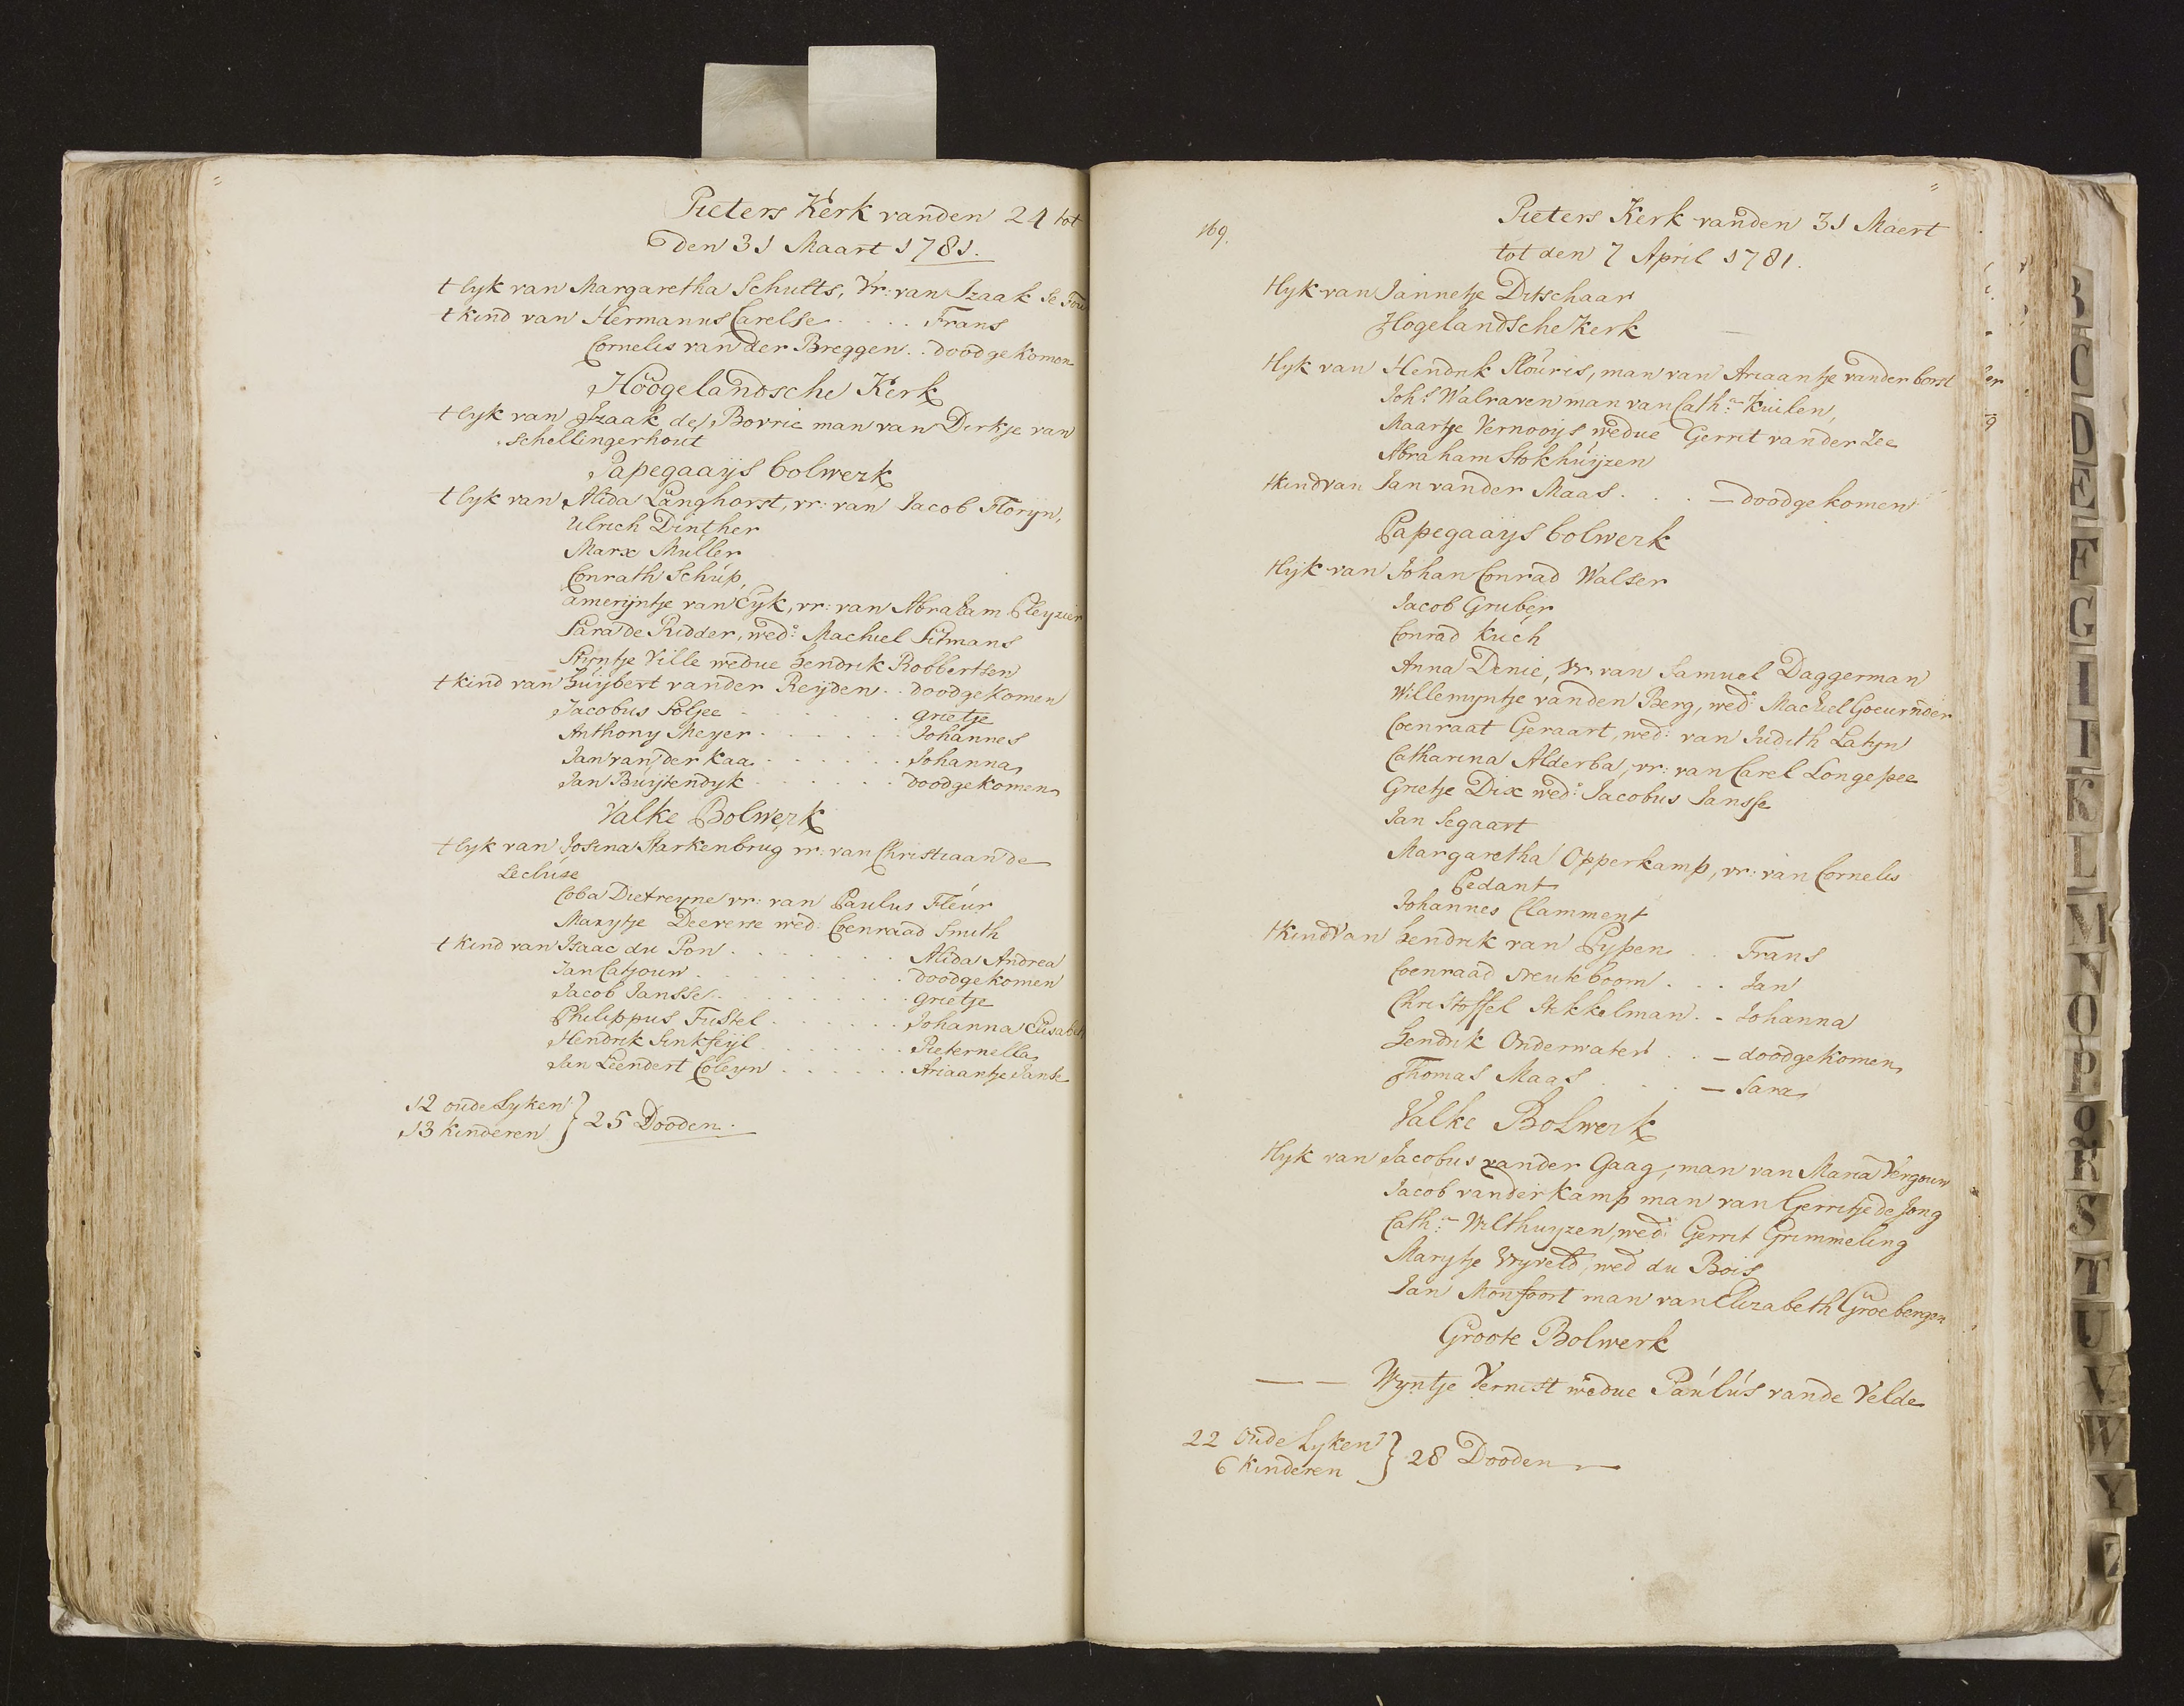 Pieters Kerk van den 24 tot
den 31 Maart 1781.
t lyk van Margaretha Schults, Vr: van Izaak le Fou
t kind van Hermanus Carelse . . . . Frans
Cornelis van der Breggen . . doodgekomen
Hoogelandsche Kerk
t lyk van Izaak de Bovrie man van Dirkje van
Schellingerhout
Papegaaijs bolwerk
t lyk van Alida Langhorst, vr: van Jacob Floryn,
Ulrich Dinther
Marx Muller
Conrath Schup,
amerijntje van Eyk, vr: van Abraham Pleyzier
Sara de Ridder, wed: Machiel Sitmans
Stijntje Ville wedue hendrik Robbertsen
t kind van huijbert vander Reijden . . doodgekomen
Jacobus Soljee . . . . . . grietje
Anthony Meyer . . . . . . Johannes
Jan van der Kaa . . . . . . Johanna
Jan Buijtendyk . . . . . . doodgekomen
Valke Bolwerk
t lyk van Josina Starkenbrug vr: van Christiaan de
Lecluse
Coba Dietreyne vr: van Paulus Fleur
Marytje Deeverse wed: Coenraad Smith
t kind van Isaac du Pon . . . . . . . Alida Andrea
Jan Catjouw . . . . . . . doodgekomen
Jacob Jansse . . . . . . . grietje
Philippus Fustel . . . . . . Johanna Elisabeth
Hendrik Sinkfeyl . . . . . . Pieternella
Jan Leendert Coleyn . . . . . . Ariaantje Janse
12 oude Lyken
13 Kinderen } 25 Dooden.
169.
Pieters Kerk vanden 31 Maert
tot den 7 April 1781.
t lyk van Jannetje Ditschaar
Hogelandsche Kerk
t lyk van Hendrik Flouris, man van Ariaantje vander borst
Johs Walraven man van Catha Kuilen,
Maartje Vernooys wedue Gerrit vander Zee
Abraham Stokhuijzen
t kind van Jan vander Maas . . . doodgekomen
Papegaaijs bolwerk
t lijk van Johan Conrad Walser
Jacob Gruber
Conrad Kuch
Anna Denie, vr: van Samuel Daggerman
Willemyntje vanden Berg, wed: Machiel
Coenraat Geraart, wed: van Judith Latyn
Catharina Alderba, vr: van Carel Longepee
Grietje Dix wed: Jacobus Jansse
Jan Segaart
Margaretha Opperkamp, vr: van Cornelis
Pedant
Johannes Clamment
t kind van hendrik van Pijpen . . Frans
Coenraad Neuteboom . . . Jan
Christoffel Stekkelman . . Johanna
hendrik Onderwater . . doodgekomen
Thomas Maas . . . Sara
Valke Bolwerk
t lyk van Jacobus vander Gaag, man van Maria Vergouw
Jacob vander Kamp man van Gerritje de Jong
Catha Wilthuyzen, wed: Gerrit Grimmeling
Marytje Vryveld, wed du Bois
Jan Monfoort man van Elizabeth Groebergen
Groote Bolwerk
— — Wyntje Vernist wedue Paulus vande Velde
22 Oude Lyken
6 Kinderen } 28 Dooden
B
C
D
E
F
G
I
K
L
M
N
O
P
Q
R
S
T
U
V
W
Y
Z